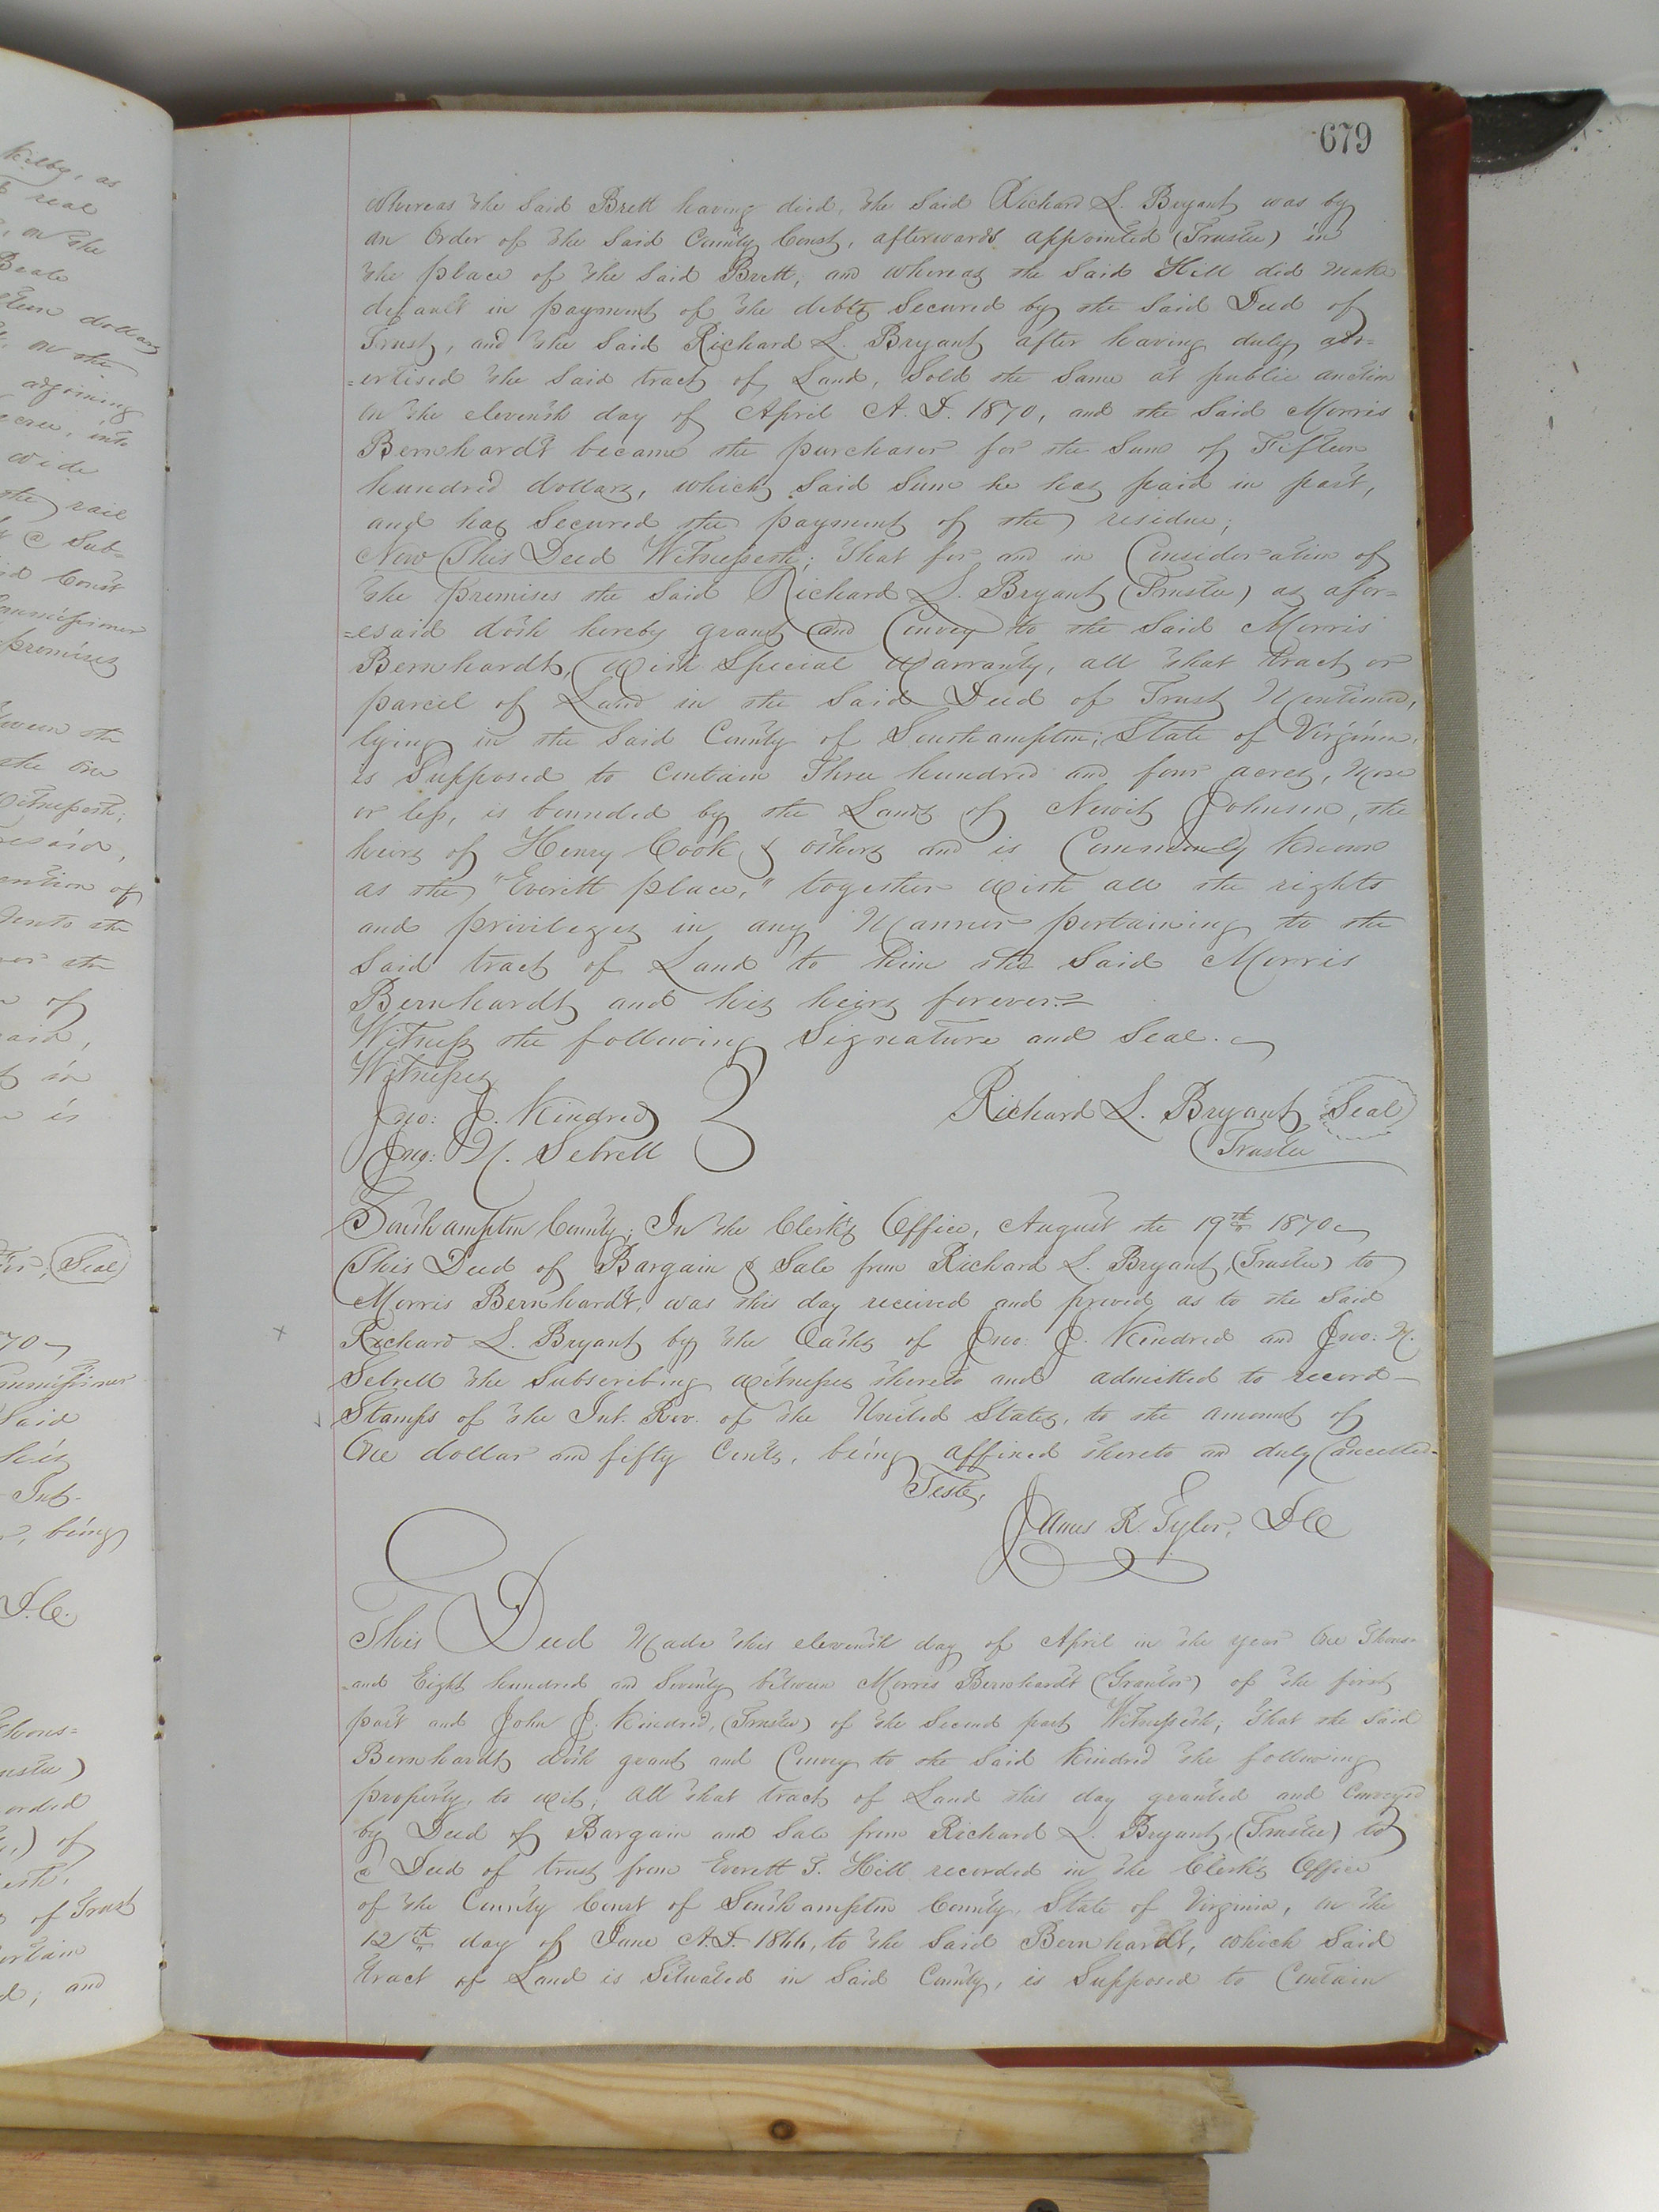 679
Kilby, as
real
on the
Beale
dollars
on the
adjoining
into
wide
the rail
Sub=
Court
Commissioner
premises
the
the one
Witnesseth;
ention of
the
of
said,
in
is
Seal
70
Commissioner
Said
his
Int.
being
D.C.
Thous=
ustee)
orded
of
of Trust
ertain
and
Whereas the said Brett having died, the said Richard L. Bryant was by
an Order of the said County Court, afterwards appointed (Trustee) in
the place of the said Brett, and whereas the said Hill did make
default in payment of the debts Secured by the said Deed of
Trust, and the said Richard L. Bryant after having duly adv=
=ertised the said tract of Land, Sold the Same at public auction
on the eleventh day of April A.D. 1870, and the said Morris
Bernhardt became the purchaser for the Sum of Fifteen
hundred dollars, which said Sum he has paid in part,
and has Secured the payment of the residue;
Now This Deed Witnesseth; That for and in Consideration of
the premises the said Richard L. Bryant (Trustee) as afor=
=esaid doth hereby grant and Convey to the said Morris
Bernhardt, With Special Warranty, all that tract or
parcel of Land in the said Deed of Trust Mentioned,
lying in the said County of Southampton; State of Virginia,
is Supposed to Contain Three hundred and four acres, More
or less, is bounded by the Lands of Newit Johnson, the
heirs of Henry Cook & others and is Commonly Known
as the "Everett place," together with all the rights
and privileges in any Manner pertaining to the
said tract of Land to him the said Morris
Bernhardt and his heirs forever.=
Witness the following Signature and Seal.
Witnesses
Jno: J. Kindred
Jno: N. Sebrell
Richard L. Bryant Seal
Trustee
Southampton County; In the Clerk's Office, August the 19th 1870
This Deed of Bargain & Sale from Richard L. Bryant, (Trustee) to
Morris Bernhardt, was this day received and proved, as to the said
X
Richard L. Bryant by the Oaths of Jno: J. Kindred and Jno: N.
Sebrell the Subscribing witnesses thereto and admitted to record—
Stamps of the Int. Rev. of the United States, to the amount of
One dollar and fifty Cents, being affixed thereto and duly Cancelled-
Teste,
James R. Tyler, D.C
This Deed Made this eleventh day of April in the year One Thous=
=and Eight hundred and Seventy between Morris Bernhardt (Grantor) of the first
part and John J. Kindred, (Trustee) of the Second part Witnesseth, That the Said
Bernhardt doth grant and Convey to the said Kindred the following
property, to wit; All that tract of Land this day granted and Conveyed
by Deed of Bargain and Sale from Richard L. Bryant, (Trustee) to
a Deed of trust from Everett T. Hill recorded in the Clerk's Office
of the County Court of Southampton County, State of Virginia, on the
12th day of June A.D. 1866, to the said Bernhardt, which said
tract of Land is Situated in said County, is Supposed to Contain